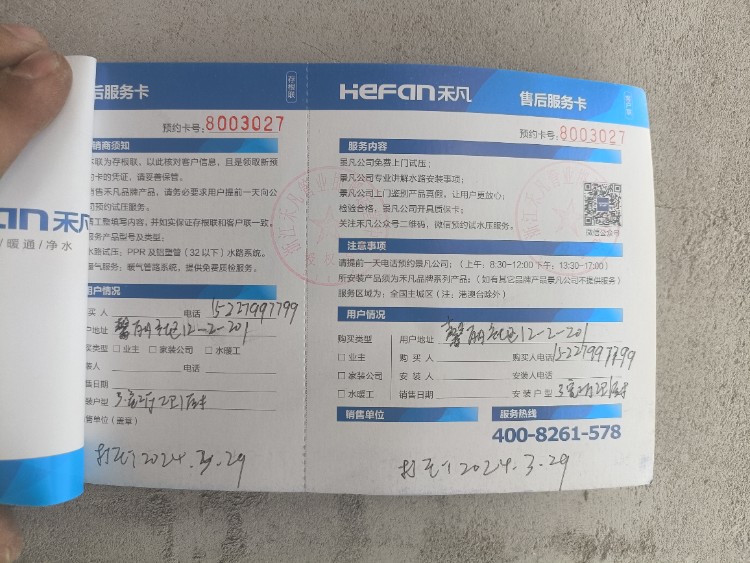 后服务卡
存根联
预约卡号:8003027
销商须知
联为存根联，以此核对客户信息，且是领取新预
约卡的凭证，请妥善保管。
售禾凡品牌产品，请务必要求用户提前一天向公
司预约试压服务。
工整填写内容，并如实保证存根联和客户联一致。
服务产品型号及类型:
水路试压: PPR 及铝塑管（32 以下）水路系统。
暖气服务: 暖气管路系统，提供免费质检服务。
用户情况
买人 电话 15227997799
户地址 12-2-201
买类型 □ 业主 □ 家装公司 □ 水暖工
装人 电话
售日期
装户型
售单位（盖章）
2024.3.29
an禾凡
/暖通/净水
HeFan禾凡 售后服务卡
预约卡号:8003027
服务内容
景凡公司免费上门试压;
景凡公司专业讲解水路安装事项;
景凡公司上门鉴别产品真假，让用户更放心;
检验合格，景凡公司开具质保卡;
关注禾凡公众号二维码，微信预约试水压服务。
微信公众号
注意事项
请提前一天电话预约景凡公司;（上午: 8:30-12:00 下午: 13:30-17:00）
所安装产品须为禾凡品牌系列产品;（如有其它品牌产品景凡公司不提供服务）
服务区域为: 全国主城区（注: 港澳台除外）
用户情况
购买类型 用户地址 12-2-201
□ 业主 购 买 人 购买人电话 15227997799
□ 家装公司 安 装 人 安装人电话
□ 水暖工 销售日期 安装户型
销售单位 服务热线
400-8261-578
2024.3.29